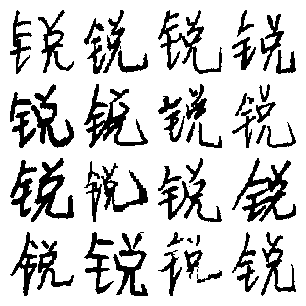 锐锐锐锐
锐锐锐锐
锐锐锐锐
锐锐锐锐